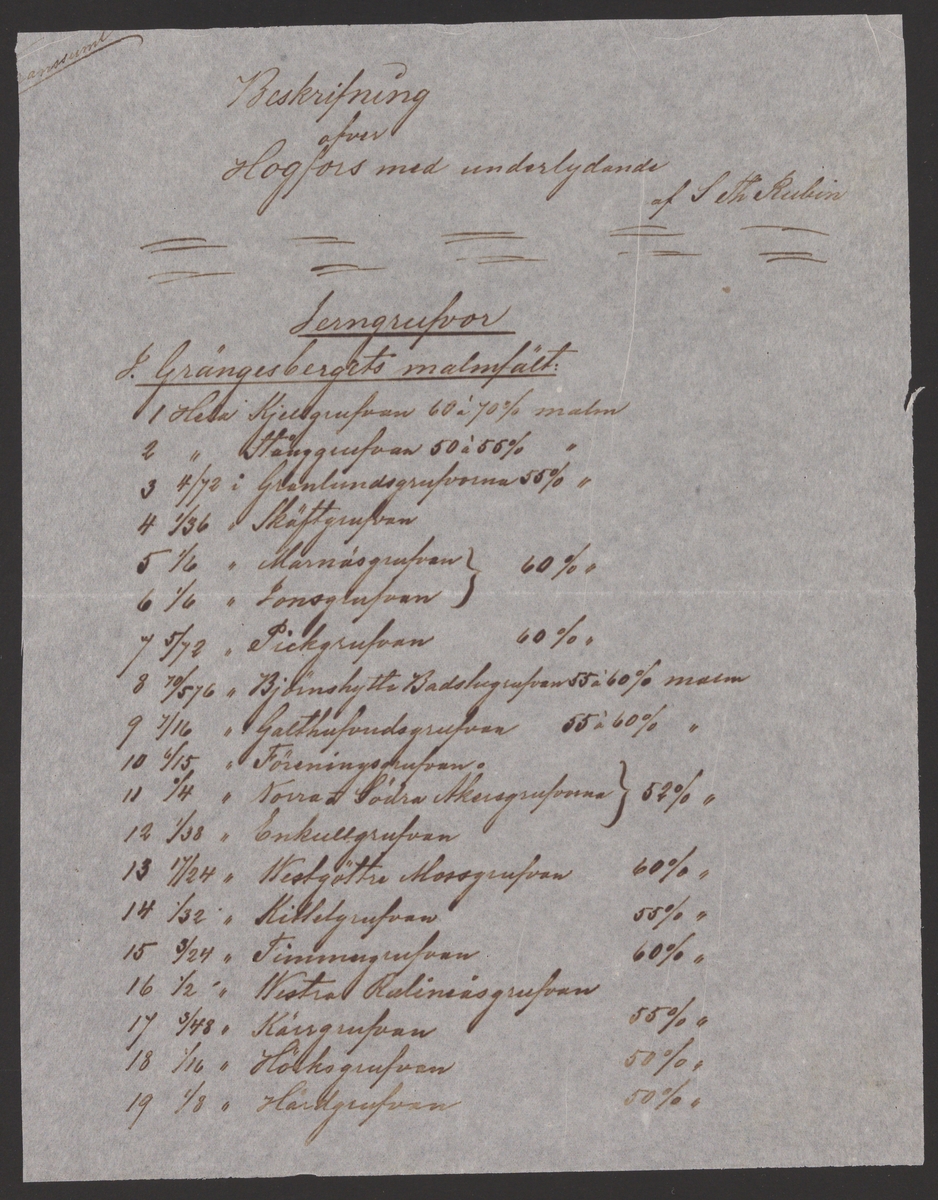 Beskrifning
öfver
Högfors med underlydande
af S Th Rubin
Jerngrufvor
I. Grängesbergets malmfält:
1 Hela Kjellgrufvan 60 à 70% malm
2 " Stånggrufvan 50 à 55% "
3 4/72 i Granlundsgrufvorna 55% "
4 1/36 " Skäftgrufvan
5 1/6 " Marnäsgrufvan } 60% "
6 1/6 " Jonsgrufvan
7 5/72 " Pickgrufvan 60% "
8 70/576 " Björnhytte Badstugrufvan 55 à 60% malm
9 7/16 " Galthufvudsgrufvan 55 à 60% "
10 6/15 " Föreningsgrufvan
11 /4 " Norra o Södra Åkersgrufvorna } 52% "
12 1/38 " Enkullgrufvan
13 17/24 " Westgöthe Mossgrufvan 60% "
14 1/32 " Kittelgrufvan 55% "
15 3/24 " Timmergrufvan 60% "
16 1/2 " Westra grufvan
17 3/48 " Kärrgrufvan 55% "
18 1/16 " Höksgrufvan 50% "
19 1/8 " Hårdgrufvan 50% "